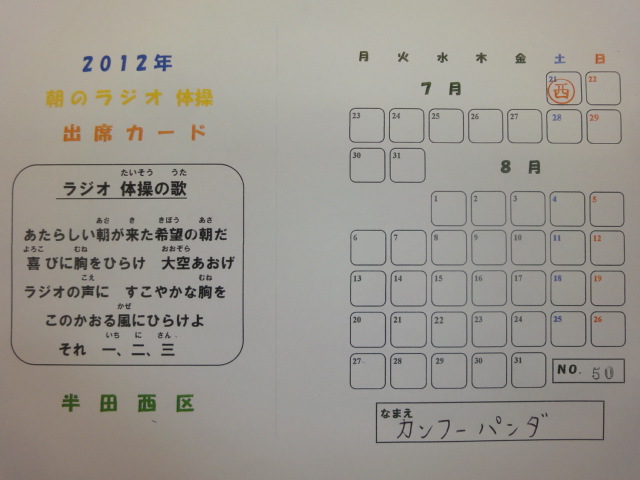 2012年
朝のラジオ 体操
出席カード
たいそう うた
ラジオ 体操の歌
あさ き きぼう あさ
あたらしい朝が来た希望の朝だ
よろこ むね おおぞら
喜 びに胸をひらけ 大空あおげ
こえ むね
ラジオの声に すこやかな胸を
かぜ
このかおる風にひらけよ
いち に さん
それ 一、二、三
半田西区
月 火 水 木 金 土 日
7月
21 22
西
23 24 25 26 27 28 29
30 31
8月
1 2 3 4 5
6 7 8 9 10 11 12
13 14 15 16 17 18 19
20 21 22 23 24 25 26
27 28 29 30 31
NO. 50
なまえ
カンフーパンダ